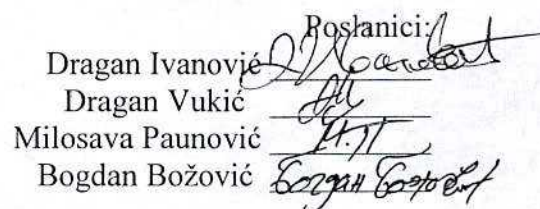 Poslanici:
Dragan Ivanović
Dragan Vukić
Milosava Paunović
Bogdan Božović Богдан Божовић